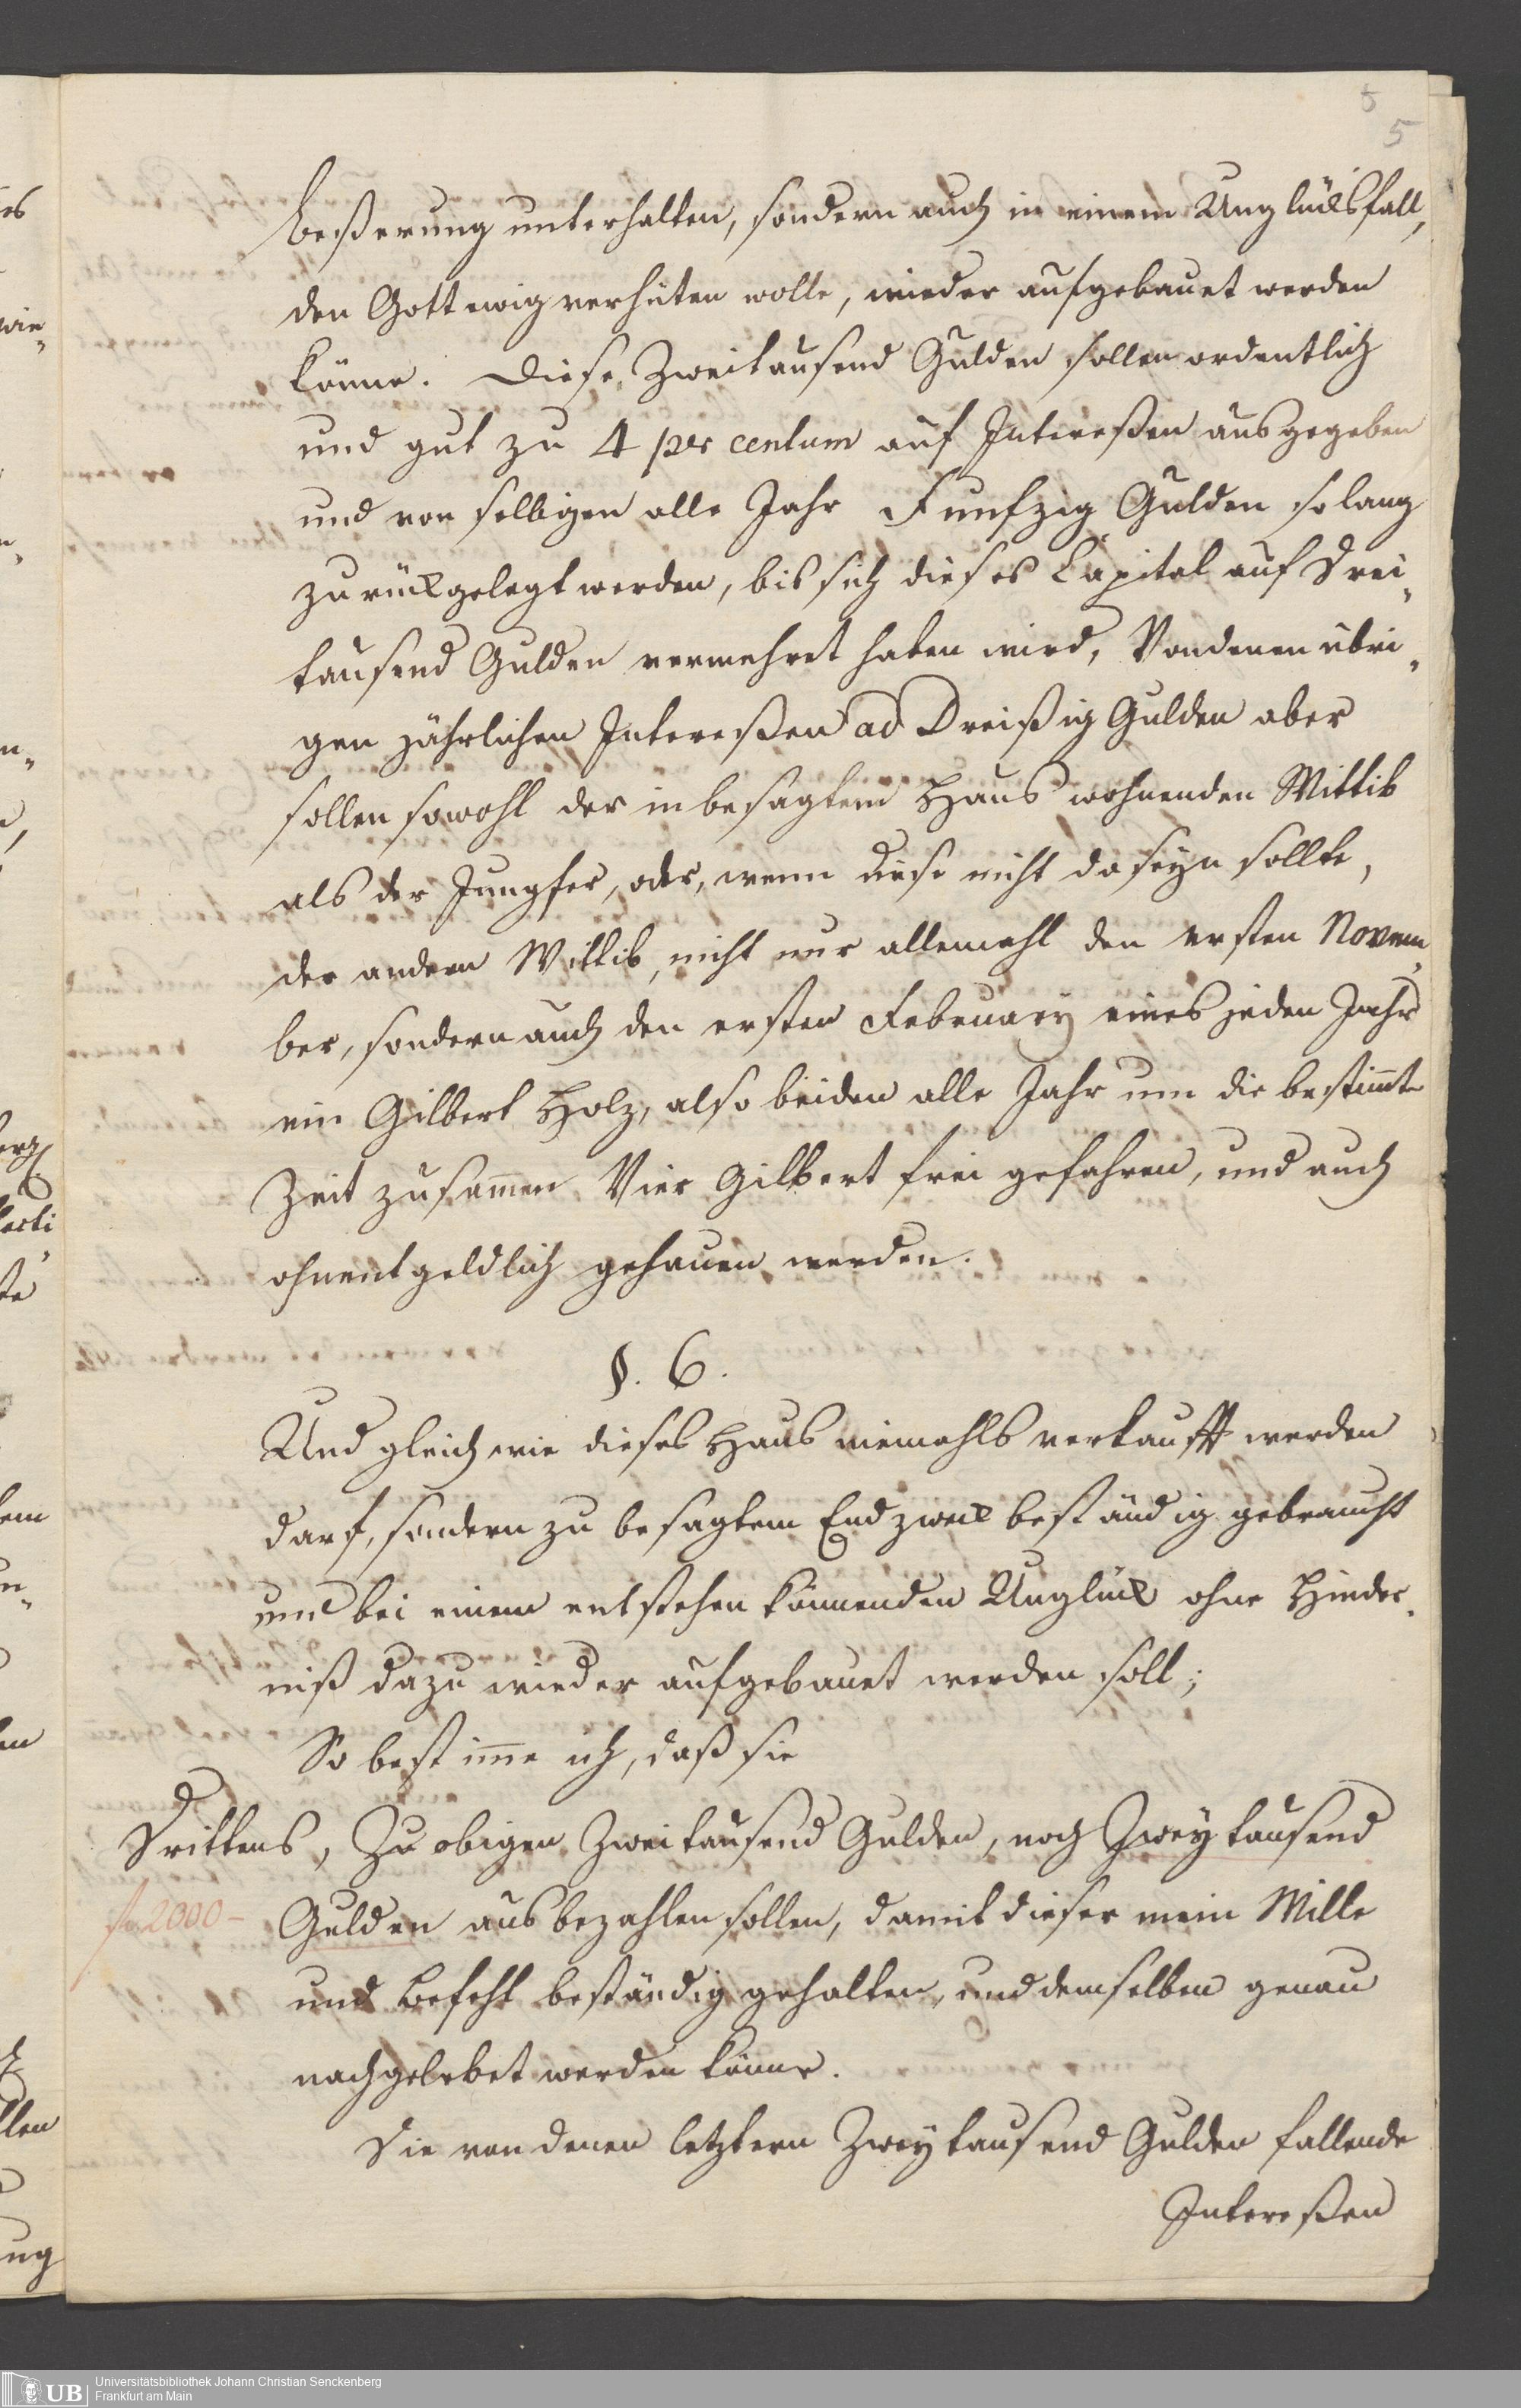 5
5
beßerung unterhalten, sondern auch in einem Unglücksfall,
den Gott ewig verhüten wolle, wieder aufgebauet werden
könne. Diese Zweitausend Gulden sollen ordentlich
und gut zu 4 per centum auf Intereßen ausgegeben
und von selbigen alle Jahr Funfzig Gulden so lang
zurückgelegt werden, bis sich dieses Capital auf Drei„
tausend Gulden vermehret haben wird, Von denen übri„
gen jährlichen Intereßen ad Dreißig Gulden aber
sollen sowohl der in besagtem Haus wohnenden Wittib
als der Jungfer, oder, wenn diese nicht da seyn sollte,
der andern Wittib, nicht nur allemahl den ersten Novem„
ber, sondern auch den ersten February eines jeden Jahrs
ein Gilbert Holz, also beiden alle Jahr um die bestimte
Zeit zusamen Vier Gilbert frei gefahren, und auch
ohnentgeldlich gehauen werden.
§. 6.
Und gleich wie dieses Haus niemahls verkaufft werden
darf, sondern zu besagtem Endzweck beständig gebraucht
und bei einem entstehen könnenden Unglück ohne Hinder„
niß dazu wieder aufgebauet werden soll;
So bestimme ich, daß sie
Drittens, Zu obigen Zweitausend Gulden, noch Zweytausend
f 2000 – Gulden ausbezahlen sollen, damit dieser mein Wille
und Befehl beständig gehalten, und demselben genau
nachgelebet werden könne.
Die von denen letztern Zweytausend Gulden fallende
Intereßen
UB
Universitätsbibliothek Johann Christian Senckenberg
Frankfurt am Main